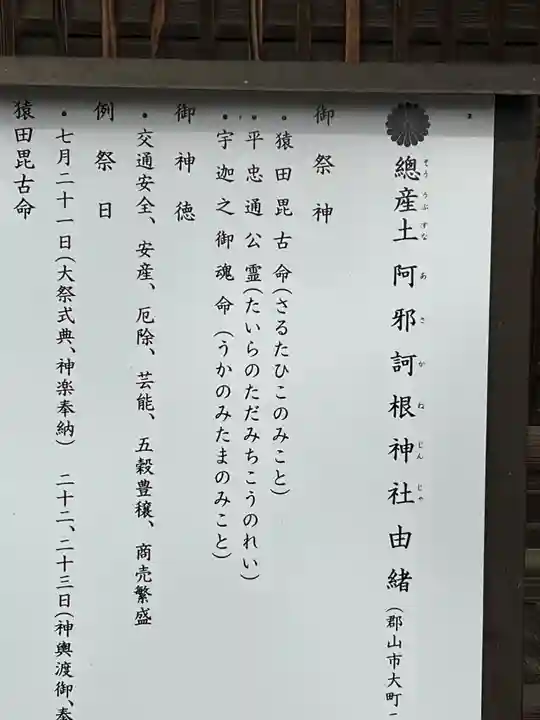 總産土 阿邪訶根神社由緒(郡山市大町
そううぶすな あさかねじんじゃ
御祭神
・猿田毘古命(さるたひこのみこと)
・平忠通公霊(たいらのただみちこうのれい)
・宇迦之御魂命(うかのみたまのみこと)
御神徳
・交通安全、安産、厄除、芸能、五穀豊穣、商売繁盛
例祭日
・七月二十一日(大祭式典、神楽奉納) 二十二、二十三日(神輿渡御、奉
猿田毘古命